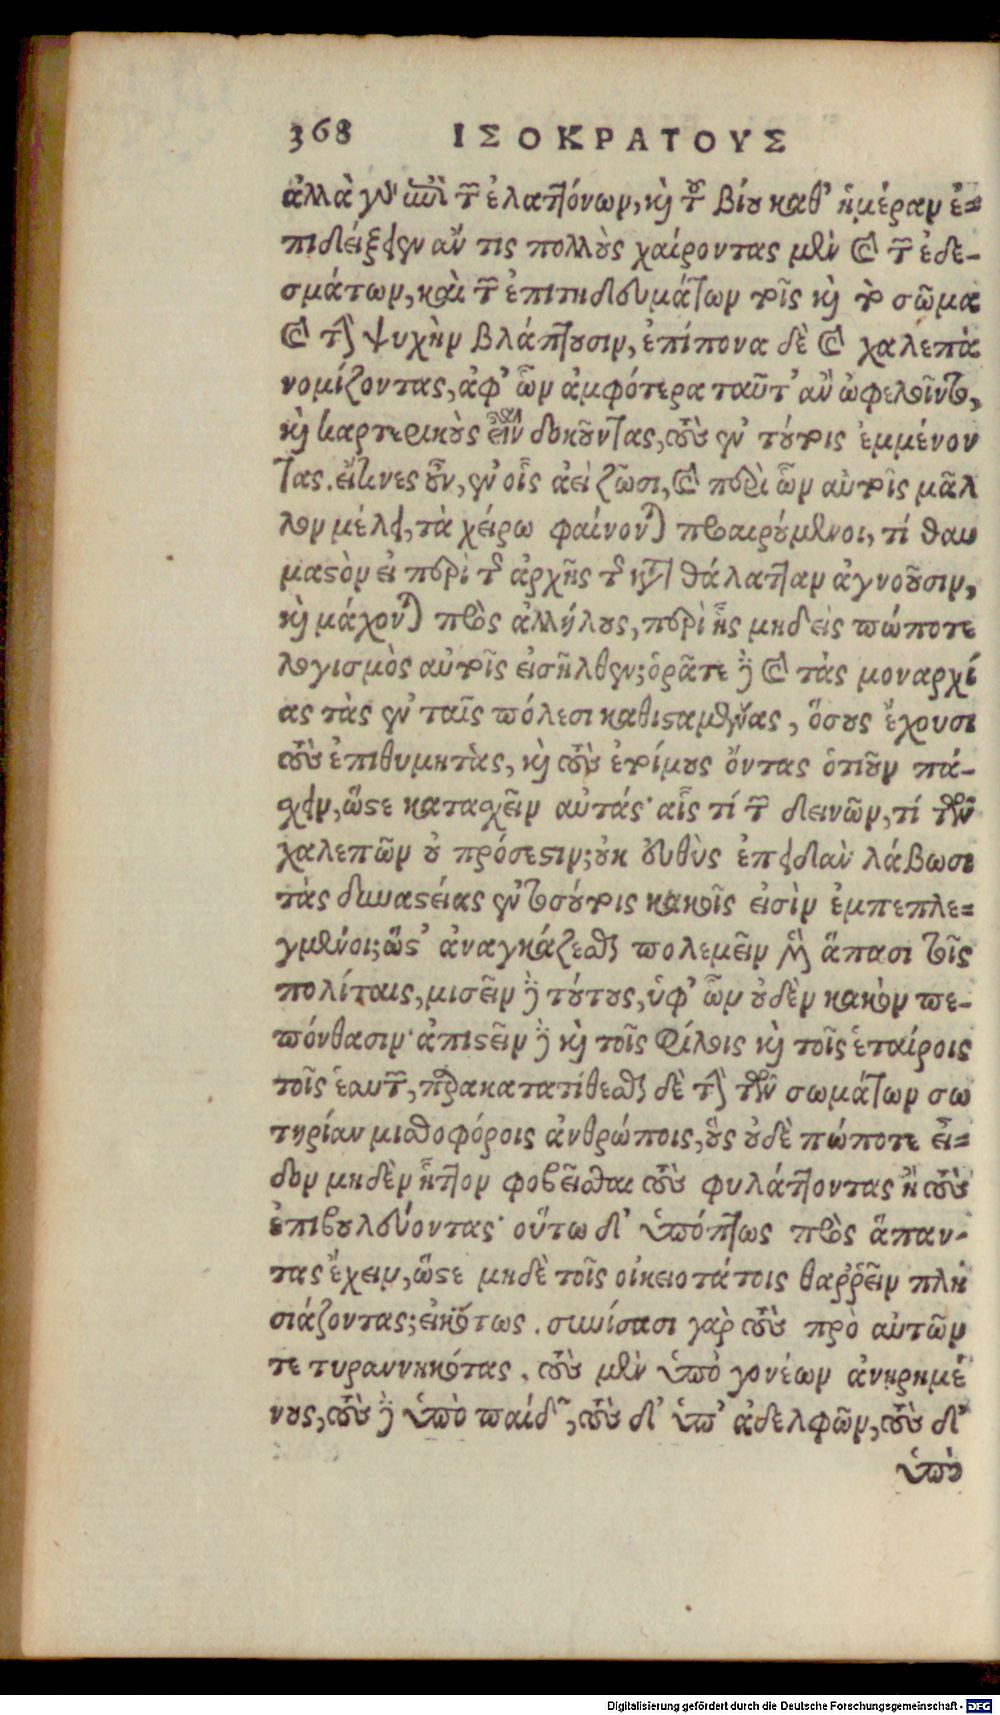 368 ΙΣΟΚΡΑΤΟΥΣ
ἀλλὰ γὰρ ἐπὶ τῶν ἐλαττόνων, καὶ τοῦ βίου καθ' ἡμέραν ἐ=
πιδείξειεν ἄν τις πολλοὺς χαίροντας μὲν καὶ τῶν ἐδε-
σμάτων, καὶ τῶν ἐπιτηδευμάτων τοῖς καὶ τὸ σῶμα
καὶ τὴν ψυχὴν βλάπτουσιν, ἐπίπονα δὲ καὶ χαλεπὰ
νομίζοντας, ἀφ' ὧν ἀμφότερα ταῦτ' ἂν ὠφελοῖντο,
καὶ καρτερικοὺς εἶναι δοκοῦντας, τοὺς ἐν τούτοις ἐμμένον
τας. οἵτινες οὖν, ἐν οἷς ἀεὶ ζῶσι, καὶ περὶ ὧν αὐτοῖς μᾶλ
λον μέλει, τὰ χείρω φαίνονται προαιρούμενοι, τί θαυ
μαστὸν εἰ περὶ τῆς ἀρχῆς τῆς κατὰ θάλατταν ἀγνοοῦσιν,
καὶ μάχονται πρὸς ἀλλήλους, περὶ ἧς μηδεὶς πώποτε
λογισμὸς αὐτοῖς εἰσῆλθεν; ὁρᾶτε δὲ καὶ τὰς μοναρχί
ας τὰς ἐν ταῖς πόλεσι καθισταμένας, ὅσους ἔχουσι
τοὺς ἐπιθυμητὰς, καὶ τοὺς ἑτοίμους ὄντας ὁτιοῦν πά-
σχειν, ὥστε κατασχεῖν αὐτάς· αἷς τί τῶν δεινῶν, τί τῶν
χαλεπῶν οὐ πρόσεστιν; οὐκ εὐθὺς ἐπειδὰν λάβωσι
τὰς δυναστείας ἐν τοσούτοις κακοῖς εἰσὶν ἐμπεπλε=
γμένοι; ὥστ' ἀναγκάζεσθαι πολεμεῖν μὲν ἅπασι τοῖς
πολίταις, μισεῖν δὲ τούτους, ὑφ' ὧν οὐδὲν κακὸν πε-
πόνθασιν· ἀπιστεῖν δὲ καὶ τοῖς φίλοις καὶ τοῖς ἑταίροις
τοῖς ἑαυτῶν, παρακατατίθεσθαι δὲ τὴν τῶν σωμάτων σω
τηρίαν μισθοφόροις ἀνθρώποις, οὓς οὐδὲ πώποτε εἶ=
δον μηδὲν ἧττον φοβεῖσθαι τοὺς φυλάττοντας ἢ τοὺς
ἐπιβουλεύοντας· οὕτω δ' ὑπόπτως πρὸς ἅπαν-
τας ἔχειν, ὥστε μηδὲ τοῖς οἰκειοτάτοις θαῤῥεῖν πλη
σιάζοντας; εἰκότως. συνίσασι γὰρ τοὺς πρὸ αὐτῶν
τετυραννηκότας, τοὺς μὲν ὑπὸ γονέων ἀνῃρημέ
νους, τοὺς δὲ ὑπὸ παίδων, τοὺς δ' ὑπ' ἀδελφῶν, τοὺς δ'
ὑπὸ
Digitalisierung gefördert durch die Deutsche Forschungsgemeinschaft - DFG